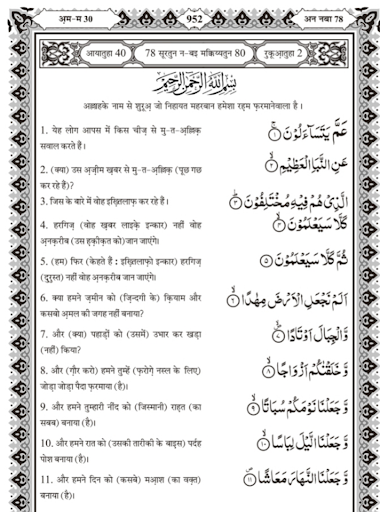 अ़म-म 30
952
अन नबा 78
आयातुहा 40
78 सूरतुन न-बइ मक्किय्यतुन 80
रुकूआ़तुहा 2
بِسْمِ اللّٰهِ الرَّحْمٰنِ الرَّحِيْمِ
अल्लाहके नाम से शुरूअ़ जो निहायत महरबान हमेशा रह़म फ़रमानेवाला है।
1. येह लोग आपस में किस चीज़ से मु-त-अ़ल्लिक़
सवाल करते हैं।
عَمَّ يَتَسَآءَلُوْنَ ۚ﴿۱﴾
2. (क्या) उस अ़ज़ीम ख़बर से मु-त-अ़ल्लिक़ (पूछ गछ
कर रहे हैं)?
عَنِ النَّبَاِ الْعَظِيْمِ ۙ﴿۲﴾
3. जिस के बारे में वोह इख़्तिलाफ़ कर रहे हैं।
الَّذِيْ هُمْ فِيْهِ مُخْتَلِفُوْنَ ؕ﴿۳﴾
4. हरगिज़ (वोह ख़बर लाइक़े इन्कार) नहीं वोह
अ़नक़रीब (उस ह़क़ीक़त को)जान जाएंगे।
كَلَّا سَيَعْلَمُوْنَ ۙ﴿۴﴾
5. (हम) फिर (केहते हैं : इख़्तिलाफ़ो इन्कार) हरगिज़
(दुरुस्त) नहीं वोह अ़नक़रीब जान जाएंगे।
ثُمَّ كَلَّا سَيَعْلَمُوْنَ ﴿۵﴾
6. क्या हमने ज़मीन को (ज़िन्दगी के) क़ियाम और
कसबो अ़मल की जगह नहीं बनाया?
اَلَمْ نَجْعَلِ الْاَرْضَ مِهٰدًا ۙ﴿۶﴾
7. और (क्या) पहाड़ों को (उसमें) उभार कर खड़ा
(नहीं) किया?
وَّالْجِبَالَ اَوْتَادًا ۪ۙ﴿۷﴾
8. और (ग़ौर करो) हमने तुम्हें (फ़रोग़े नस्ल के लिए)
जोड़ा जोड़ा पैदा फ़रमाया (है)।
وَّخَلَقْنٰكُمْ اَزْوَاجًا ۙ﴿۸﴾
9. और हमने तुम्हारी नींद को (जिस्मानी) राह़त (का
सबब) बनाया (है)।
وَّجَعَلْنَا نَوْمَكُمْ سُبَاتًا ۙ﴿۹﴾
10. और हमने रात को (उसकी तारीकी के बाइ़स) पर्दह
पोश बनाया (है)।
وَّجَعَلْنَا الَّيْلَ لِبَاسًا ۙ﴿۱۰﴾
11. और हमने दिन को (कसबे) मआ़श (का वक़्त)
बनाया (है)।
وَّجَعَلْنَا النَّهَارَ مَعَاشًا ۪﴿۱۱﴾